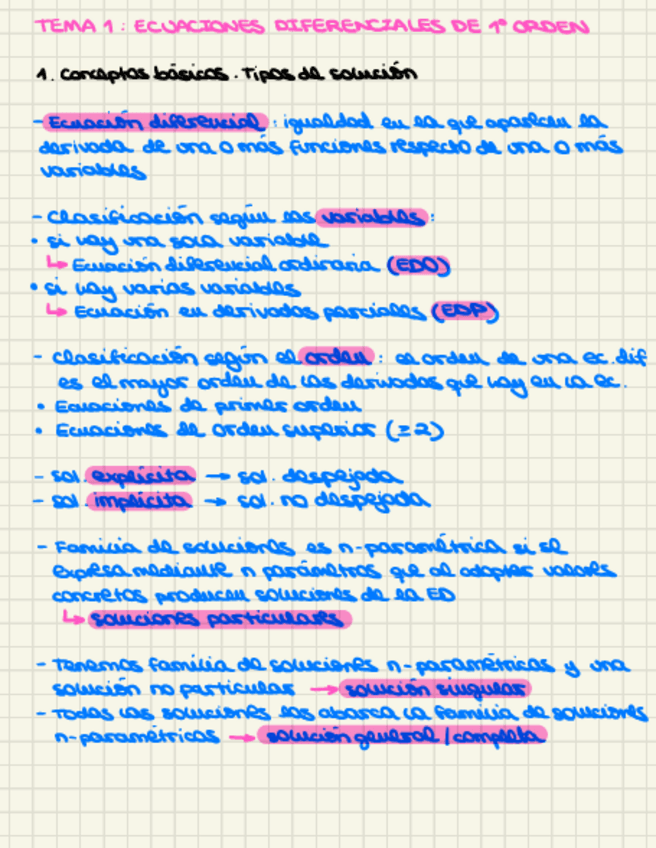 TEMA 1: ECUACIONES DIFERENCIALES DE 1º ORDEN
1. Conceptos básicos. Tipos de solución
- Ecuación diferencial: igualdad en la que aparecen la
derivada de una o más funciones respecto de una o más
variables
- Clasificación según las variables:
• si hay una sola variable
↳ Ecuación diferencial ordinaria (EDO)
• si hay varias variables
↳ Ecuación en derivadas parciales (EDP)
- Clasificación según el orden: el orden de una ec. dif
es el mayor orden de las derivadas que hay en la ec.
• Ecuaciones de primer orden
• Ecuaciones de orden superior (≥2)
- sol. explícita → sol. despejada
- sol. implícita → sol. no despejada
- Familia de soluciones es n-paramétrica si se
expresa mediante n parámetros que al adoptar valores
concretos producen soluciones de la ED
↳ soluciones particulares
- Tenemos familia de soluciones n-paramétricas y una
solución no particular → solución singular
- Todas las soluciones las abarca la familia de soluciones
n-paramétricas → solución general / completa